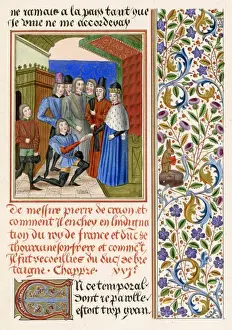 ne ramais a la pays tant que
Je vive ne me accorderay
De messire pierre de craon et
comment il enchey en lindignation
du roy de france et duc de
thouraine son frere et commēt
il fut recoeillies du duc de bre
taigne. Chappre. xxj.
En ce temporal
dont ie parolle
estoit trop gran